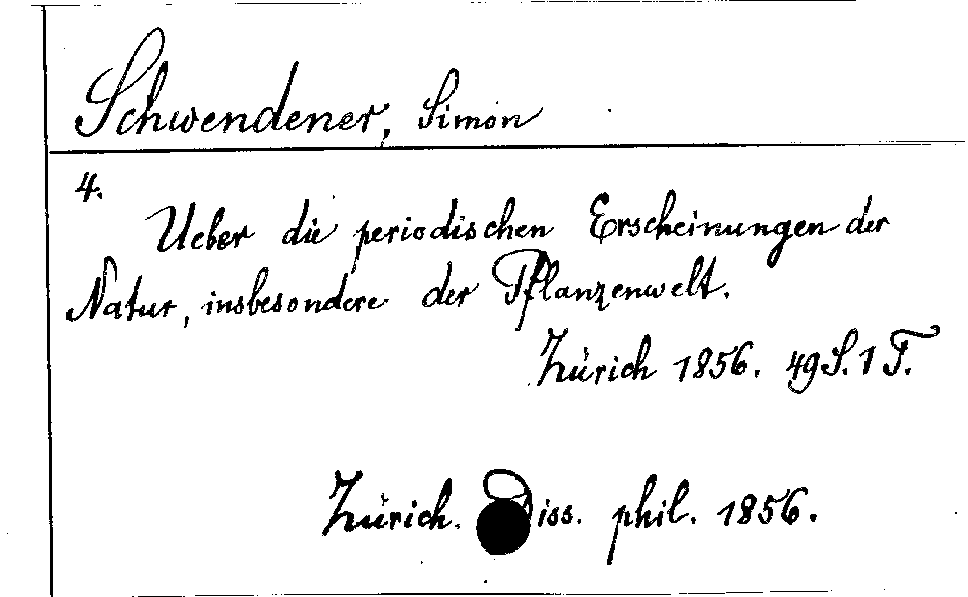 Schwendener, Simon
4.
Ueber die periodischen Erscheinungen der
Natur, insbesondere der Pflanzenwelt.
Zürich 1856. 49 S. 1 T.
Zürich. Diss. phil. 1856.